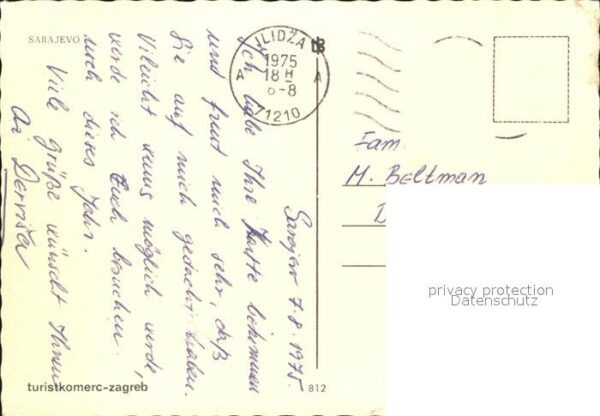 SARAJEVO
ILIDŽA
1975
18 H
A A
6-8
71210
Fam.
M. Beltman
D
Sarajevo 7.8.1975.
Ich habe Ihre Karte bekommen
und freut mich sehr, daß
Sie auf mich gedacht haben.
Vileicht wenns möglich werde,
werde ich Euch besuchen
noch dieses Jahr.
Viele Grüße wünscht Ihnen
Derviša
privacy protection
Datenschutz
turistkomerc-zagreb
812